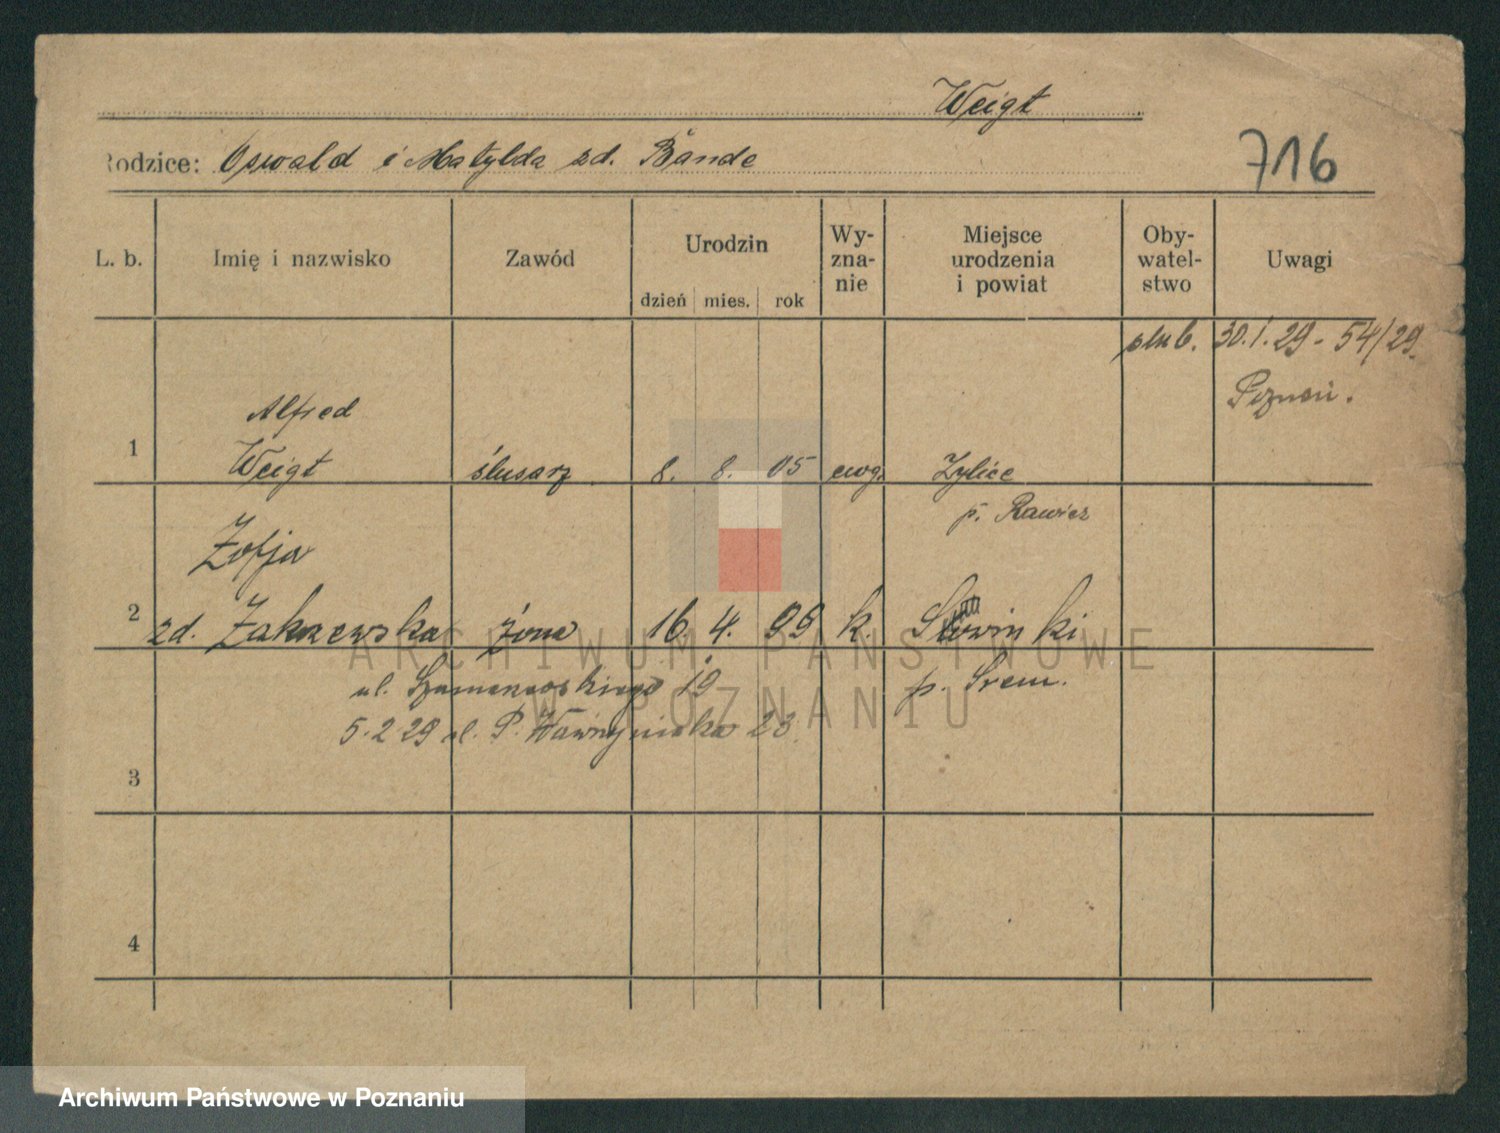 Weigt
Rodzice: Oswald i Matylda zd. Bande
716
L. b. Imię i nazwisko Zawód Urodzin dzień mies. rok Wy-zna-nie Miejsce urodzenia i powiat Oby-watel-stwo Uwagi
ślub. 30.1.29 - 54/29.
Poznań.
Alfred
1 Weigt ślusarz 8. 8. 05 ewg. Zylice
p. Rawicz
Zofja
2 zd. Zakrzewska żona 16. 4. 99 k. Słowinki
p. Śrem.
ul. 19
5.2 29 ul. P. Wawrzyniaka 23
3
4
ARCHIWUM PAŃSTWOWE
W POZNANIU
Archiwum Państwowe w Poznaniu